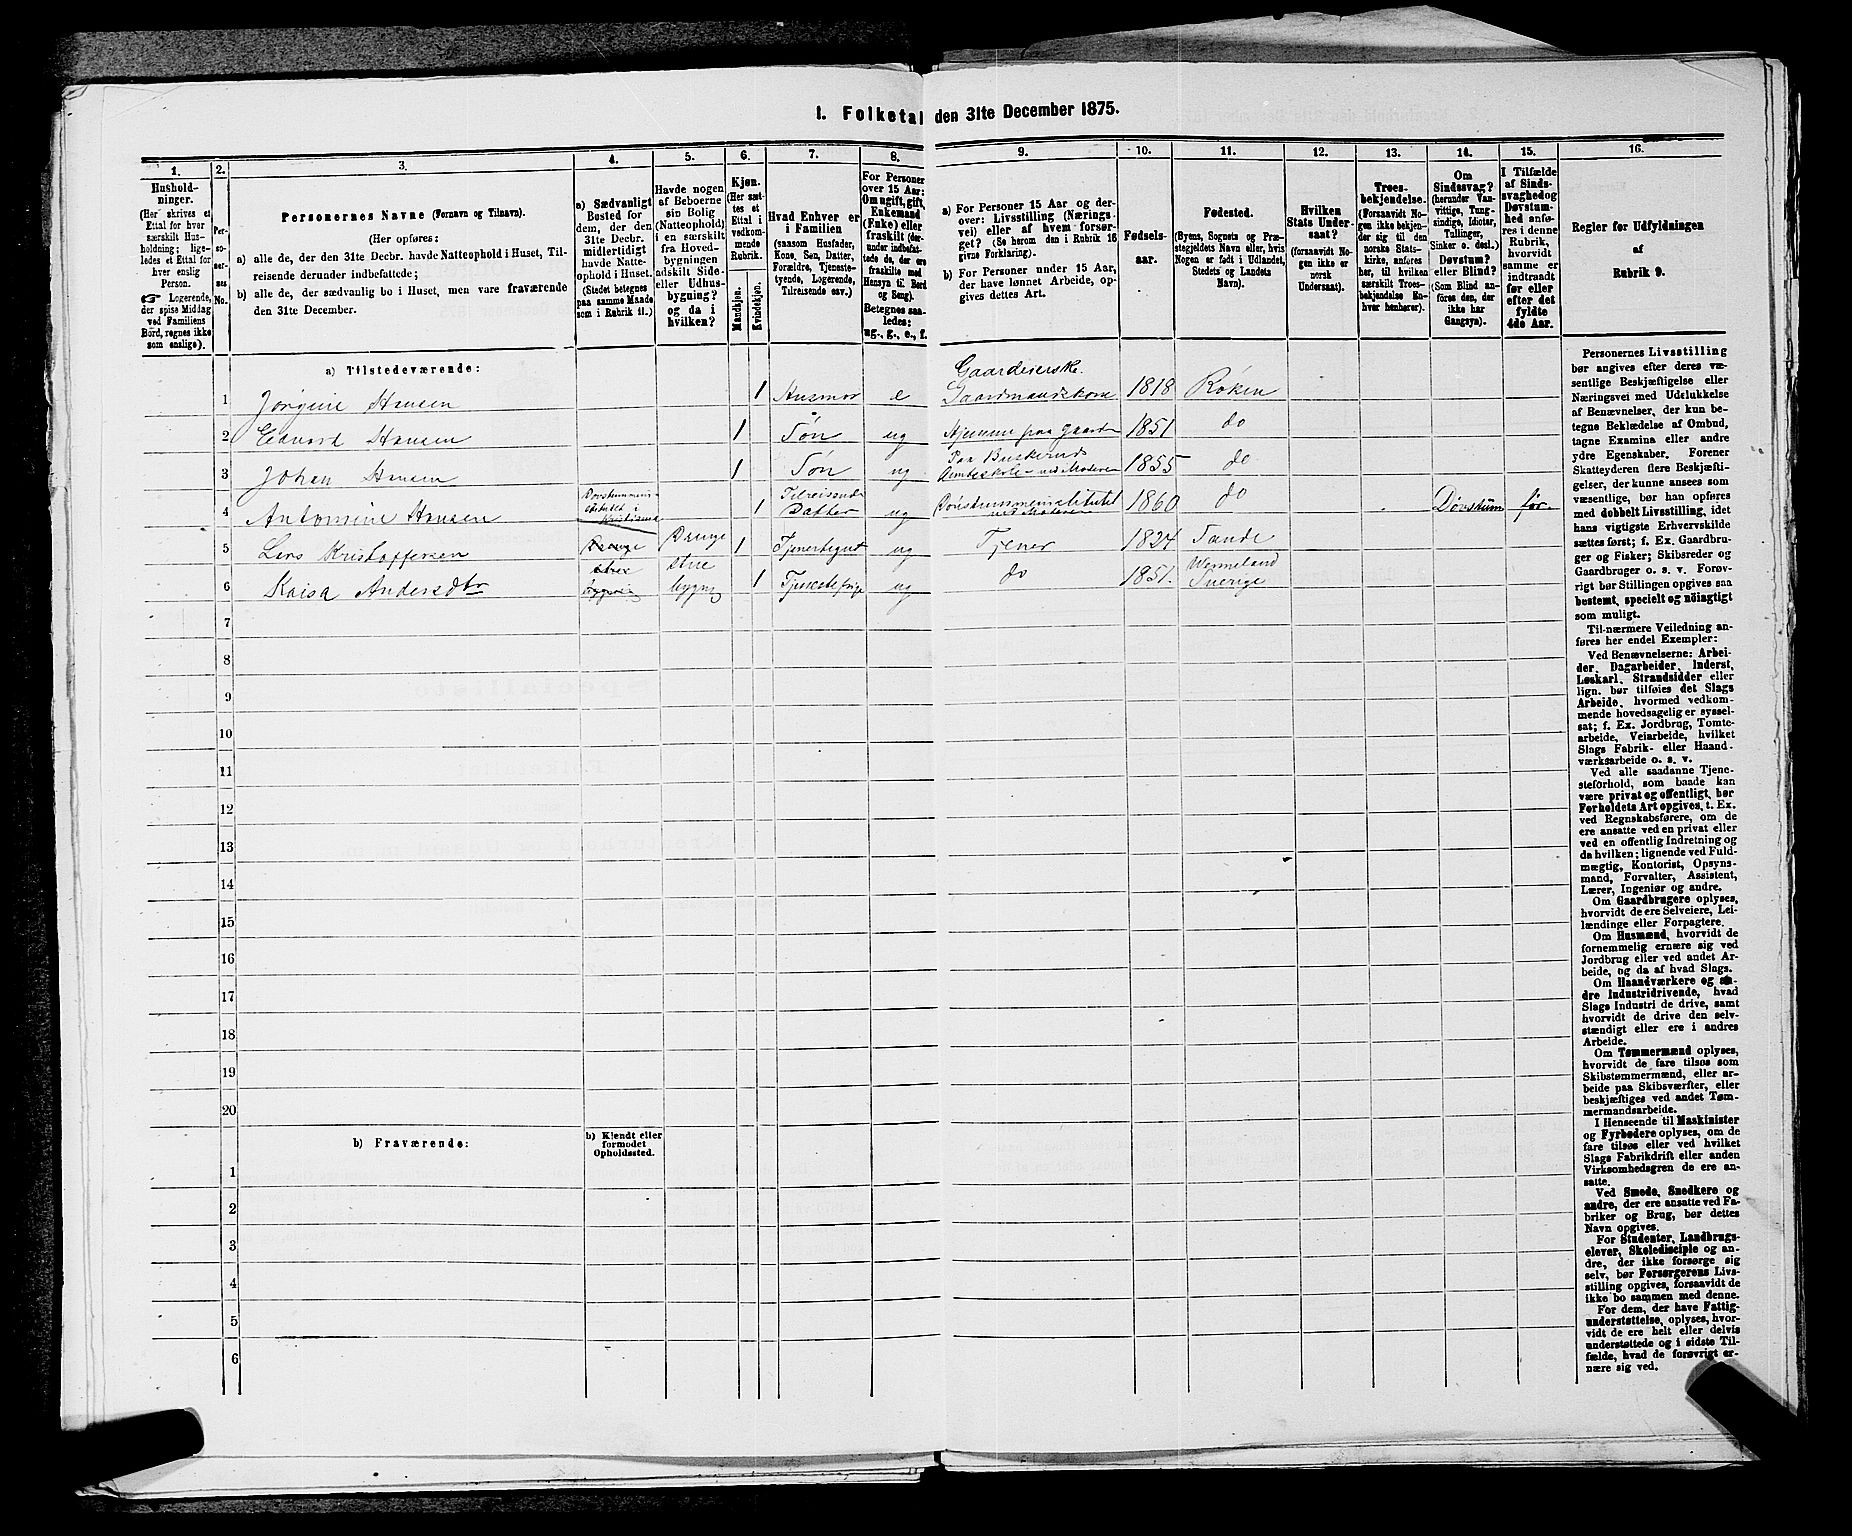 1. Folketal den 31te December 1875.
1.
2.
3.
4.
5.
6.
7.
8.
9.
10.
11.
12.
13.
14.
15.
16.
Hushold-
ninger.
(Her skrives et
Ettal for hver
særskilt Hus-
holdning; lige-
ledes et Ettal for
hver enslig
Person.
☞ Logerende,
der spise Midlag
ved Familiens
Bord, regnes ikke
som enslige).
Per-
so-
ner-
nes
No.
Personernes Navne (Fornavn og Tilnavn).
(Her opføres:
a) alle de, der den 31te Decbr. havde Natteophold i Huset, Til-
reisende derunder indbefattede;
b) alle de, der sædvanlig bo i Huset, men vare fraværende
den 31te December.
a) Sædvanligt
Bosted for
dem, der den
31te Decbr.
midlertidigt
havde Natte-
ophold i Huset.
(Stedet betegnes
paa samme Maade
som i Rubrik 11.)
Havde nogen
af Beboerne
sin Bolig
(Natteophold)
i en særskilt
fra Hoved-
bygningen
adskilt Side-
eller Udhus-
bygning?
og da i
hvilken?
Kjøn.
(Her sæt-
tes et
Ettal i
vedkom-
mende
Rubrik.
Mandkjøn.
Kvindekjøn.
Hvad Enhver er
i Familien
(saasom Husfader,
Kone, Søn, Datter,
Forældre, Tjeneste-
tyende, Logerende,
Tilreisende osv.)
For Personer
over 15 Aar:
Om ugift, gift,
Enkemand
(Enke) eller
fraskilt (der-
under indbefat-
tede de, der ere
fraskilte med
Hensyn til Bord
og Seng).
Betegnes saa-
ledes:
ug., g., e., f.
a) For Personer 15 Aar og der-
over: Livsstilling (Nærings-
vei) eller af hvem forsør-
get? (Se herom den i Rubrik 16
givne Forklaring).
b) For Personer under 15 Aar,
der have lønnet Arbeide, op-
gives dettes Art.
Fødsels-
aar.
Fødested.
(Byens, Sognets og Præ-
stegjeldets Navn eller, hvis
Nogen er født i Udlandet,
Stedets og Landets
Navn).
Hvilken
Stats Under-
saat?
(forsaavidt No-
gen ikke er
norsk
Undersaat).
Troes-
bekjendelse.
(Forsaavidt No-
gen ikke bekjen-
der sig til den
norske Stats-
kirke, anføres
her, til hvilken
særskilt Troes-
bekjendelse En-
hver henhører).
Om
Sindssvag?
(herunder Van-
vittige, Tung-
sindige, Idioter,
Tullinger,
Sinker o. desl.)
Døvstum?
eller Blind?
(Som Blind an-
føres den, der
ikke har
Gangsyn).
I Tilfælde
af Sinds-
svaghed og
Døvstum-
hed anfø-
res i denne
Rubrik,
hvorvidt
samme er
indtraadt
før eller
efter det
fyldte
4de Aar.
Regler for Udfyldningen
af
Rubrik 9.
a) Tilstedeværende:
1 Jørgine Hansen 1 Husmor e Gaardeierske. Gaardmandskone 1818 Røken
2 Edvard Hansen 1 Søn ug Hjemme paa Gaarden 1851 do
3 Johan Hansen 1 Søn ug Paa Buskeruds Amtsskole - ved Moderen 1855 do
4 Antomine Hansen Døvstummeinstitutet i Kristiania 1 Tilreisende Datter ug Døvstummeinstitutet ved Moderen 1860 do Døvstum før.
5 Lars Kristoffersen Drenge Drenge 1 Tjenertegut ug Tjener 1824 Sande
stue stue
6 Kaisa Andersdtr bygning bygnig 1 Tjenestepige ug do 1851. Wermeland Sverige
7
8
9
10
11
12
13
14
15
16
17
18
19
20
b) Fraværende:
b) Kjendt eller
formodet
Opholdssted.
1
2
3
4
5
6
Personernes Livsstilling
bør angives efter deres væ-
sentlige Beskjæftigelse eller
Næringsvei med Udelukkelse
af Benævnelser, der kun be-
tegne Beklædelse af Ombud,
tagne Examina eller andre
ydre Egenskaber. Forener
Skatteyderen flere Beskjæfti-
gelser, der kunne ansees som
væsentlige, bør han opføres
med dobbelt Livsstilling, idet
hans vigtigste Erhvervskilde
sættes først; f. Ex. Gaardbru-
ger og Fisker; Skibsreder og
Gaardbruger o. s. v. Forøv-
rigt bør Stillingen opgives saa
bestemt, specielt og nöiagtigt
som muligt.
Til nærmere Veiledning an-
føres her endel Exempler:
Ved Benævnelserne: Arbei-
der, Dagarbeider, Inderst,
Løskarl, Strandsidder eller
lign. bør tilføies det Slags
Arbeide, hvormed vedkom-
mende hovedsagelig er syssel-
sat; f. Ex. Jordbrug, Tomte-
arbeide, Veiarbeide, hvilket
Slags Fabrik- eller Haand-
værksarbeide o. s. v.
Ved alle saadanne Tjene-
steforhold, som baade kan
være privat og offentligt, bør
Forholdets Art opgives, t. Ex.
ved Regnskabsførere, om de
ere ansatte ved en privat eller
ved en offentlig Indretning og
da hvilken; lignende ved Fuld-
mægtig, Kontorist, Opsyns-
mand, Forvalter, Assistent,
Lærer, Ingeniør og andre.
Om Gaardbrugere oplyses,
hvorvidt de ere Selveiere, Lei-
lændinge eller Forpagtere.
Om Husmænd, hvorvidt de
fornemmelig ernære sig ved
Jordbrug eller ved andet Ar-
beide, og da af hvad Slags.
Om Haandværkere og an-
dre Industridrivende, hvad
Slags Industri de drive, samt
hvorvidt de drive den selv-
stændigt eller ere i andres
Arbeide.
Om Tømmermænd oplyses,
hvorvidt de fare tilsøs som
Skibstømmermænd, eller ar-
beide paa Skibsværfter, eller
beskjæftiges ved andet Tøm-
mermandsarbeide.
I Henseende til Maskinister
og Fyrbødere oplyses, om de
fare tilsøs eller ved hvilket
Slags Fabrikdrift eller anden
Virksomhedsgren de ere an-
satte.
Ved Smede, Snedkere og
andre, der ere ansatte ved Fa-
briker og Brug, bør dettes
Navn opgives.
For Studenter, Landbrugs-
elever, Skoledisciple og an-
dre, der ikke forsørge sig
selv, bør Forsørgerens Livs-
stilling opgives, forsaavidt de
ikke bo sammen med denne.
For dem, der have Fattig-
understøttelse, oplyses, hvor-
vidt de ere helt eller delvis
understøttede og i sidste Til-
fælde, hvad de forøvrigt er-
nære sig ved.